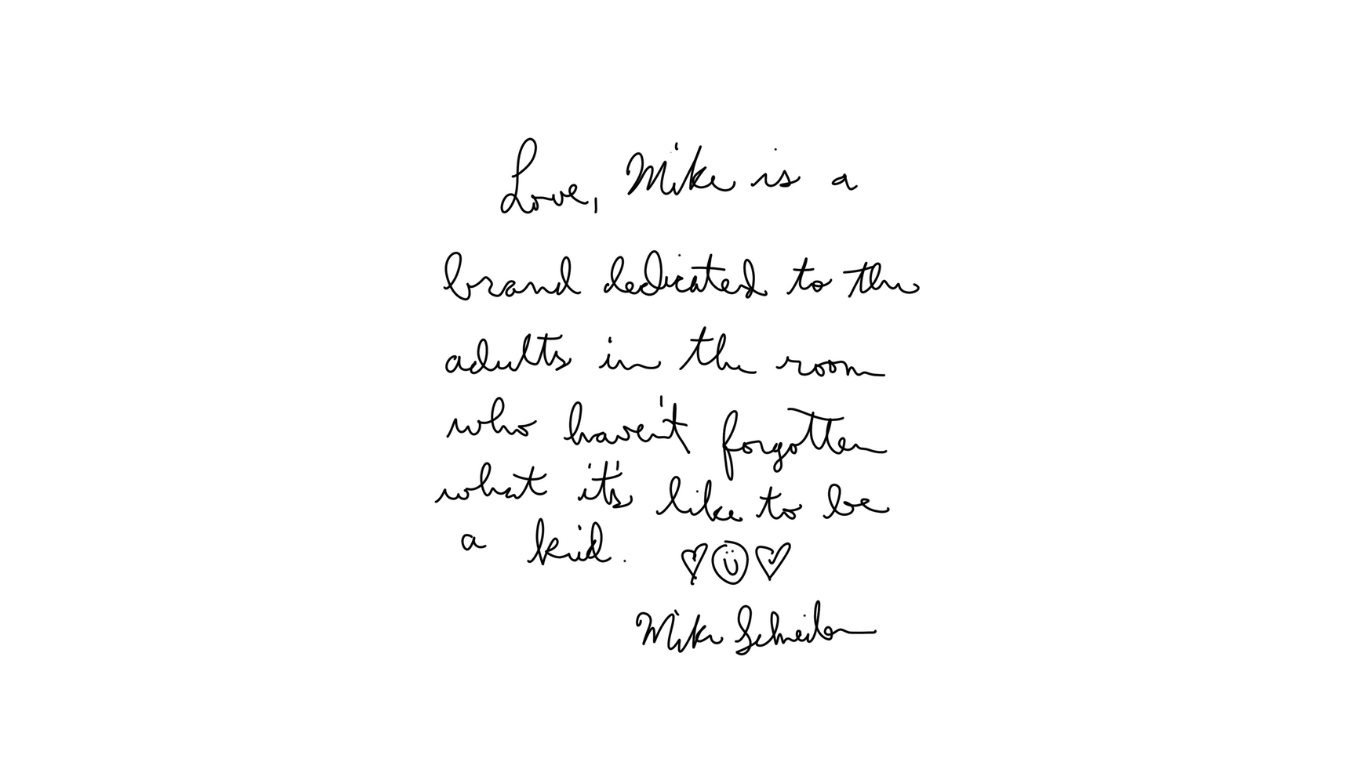 Love, Mike is a
brand dedicated to the
adults in the room
who haven't forgotten
what it's like to be
a kid. ♡☺♡
Mike